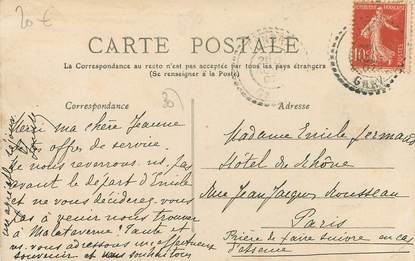 20 €
CARTE POSTALE
La Correspondance au recto n'est pas acceptée par tous les pays étrangers
(Se renseigner à la Poste)
10c
GARE
Correspondance
30
Adresse
Merci ma chère Jeanne
offres de service.
Ne nous reverrons ns. pas
avant le départ d'Emile
et ne vous déciderez vous
pas à venir nous trouver
à Malataverne? Tante et
ns. vous adressons ms. affectueux
souvenir et vous souhaitons
Madame Emile
Hôtel du Rhône
Rue Jean Jacques Rousseau
Paris
Prière de faire suivre en cas
d'absence